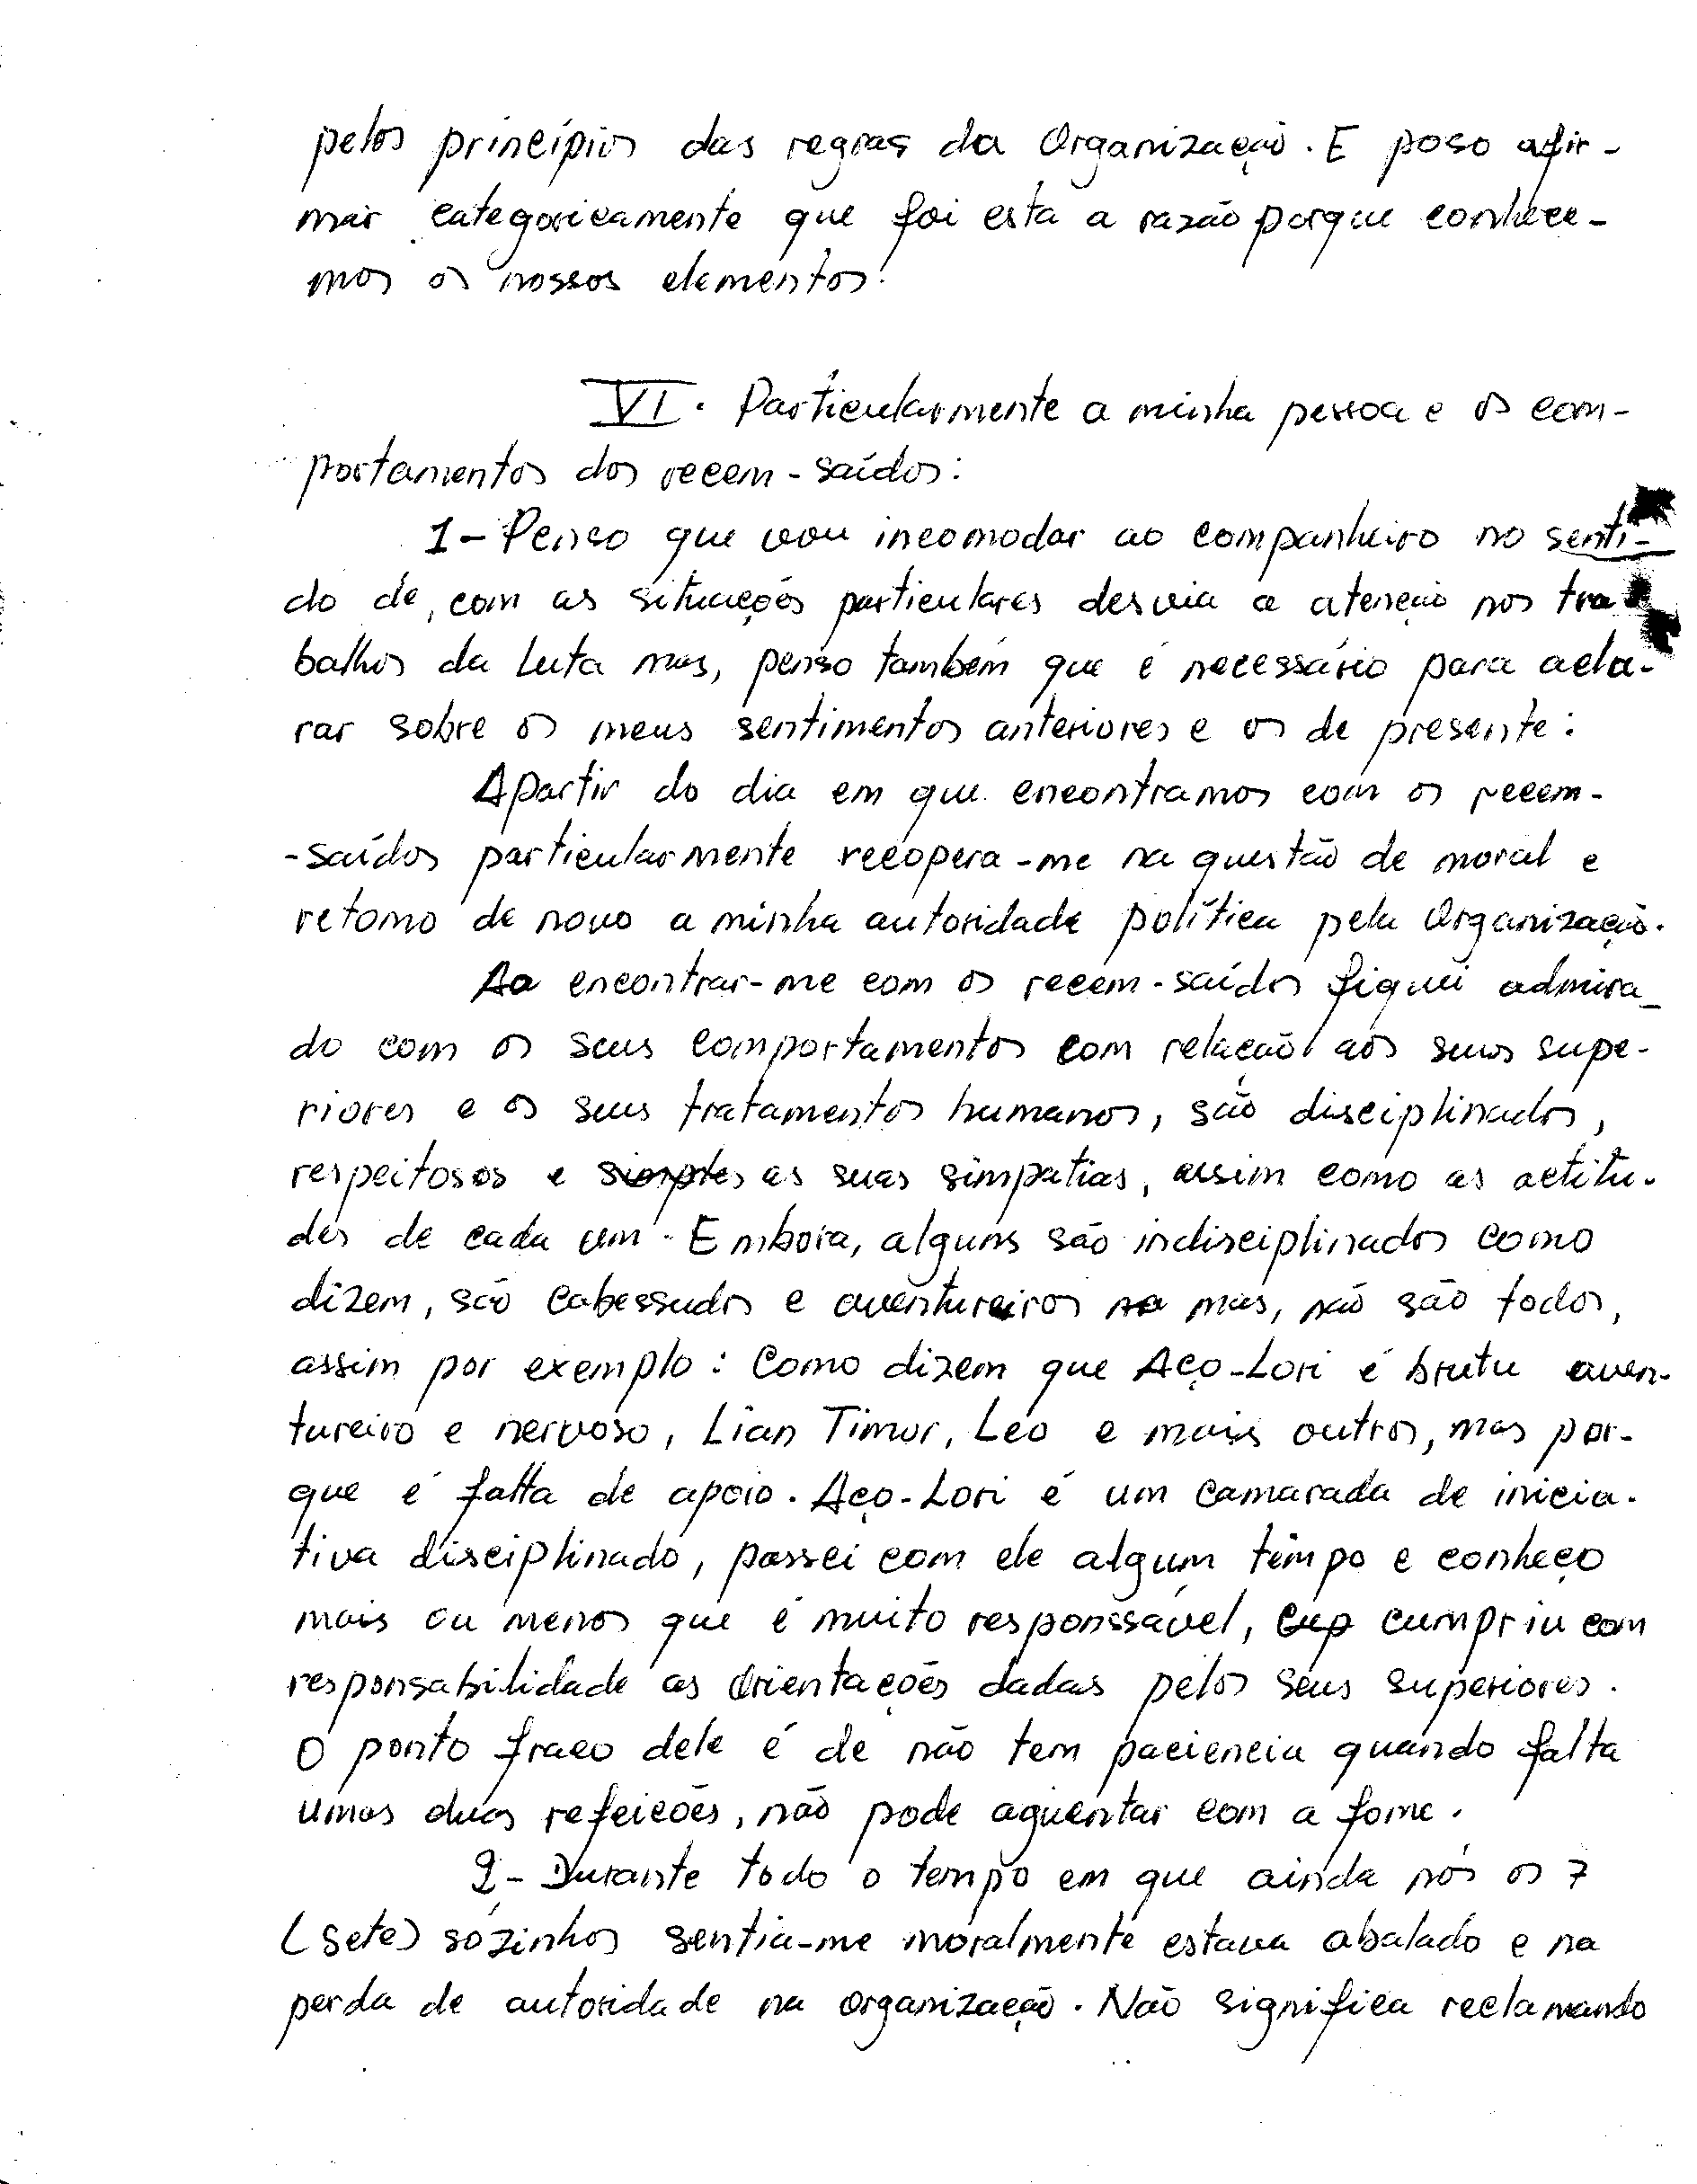 pelos princípios das regras da Organização. E poso afir-
mar categoricamente que foi esta a razão porque conhece-
mos os nossos elementos.
VI. Particularmente a minha pessoa e os com-
portamentos dos recem-saídos:
1- Penso que vou incomodar ao companheiro no senti-
do de, com as situações particulares desvia a atenção nos tra
balhos da Luta mas, penso também que é necessário para acla-
rar sobre os meus sentimentos anteriores e os de presente:
Apartir do dia em que encontramos com os recem-
-saídos particularmente recopera-me na questão de moral e
retomo de novo a minha autoridade política pela Organização.
Ao encontrar-me com os recem-saídos fiquei admira-
do com os seus comportamentos com relação aos seus supe-
riores e os seus tratamentos humanos, são disciplinados,
respeitosos e simples as suas simpatias, assim como as actitu-
des de cada um. Embora, alguns são indisciplinados como
dizem, são cabessudos e aventureiros na mas, não são todos,
assim por exemplo: Como dizem que Aço-Lori é brutu aven-
tureiro e nervoso, Lian Timor, Leo e mais outros, mas por-
que é falta de apoio. Aço-Lori é um camarada de inicia-
tiva disciplinado, passei com ele algum tempo e conheço
mais ou menos que é muito responssável, Cup cumpriu com
responsabilidade as Orientações dadas pelos seus superiores.
O ponto fraco dele é de não tem paciencia quando falta
umas duas refeicões, não pode aguentar com a fome.
2- Durante todo o tempo em que ainda nós os 7
(sete) sózinhos sentia-me moralmente estava abalado e na
perda de autoridade na organização. Não significa reclamando